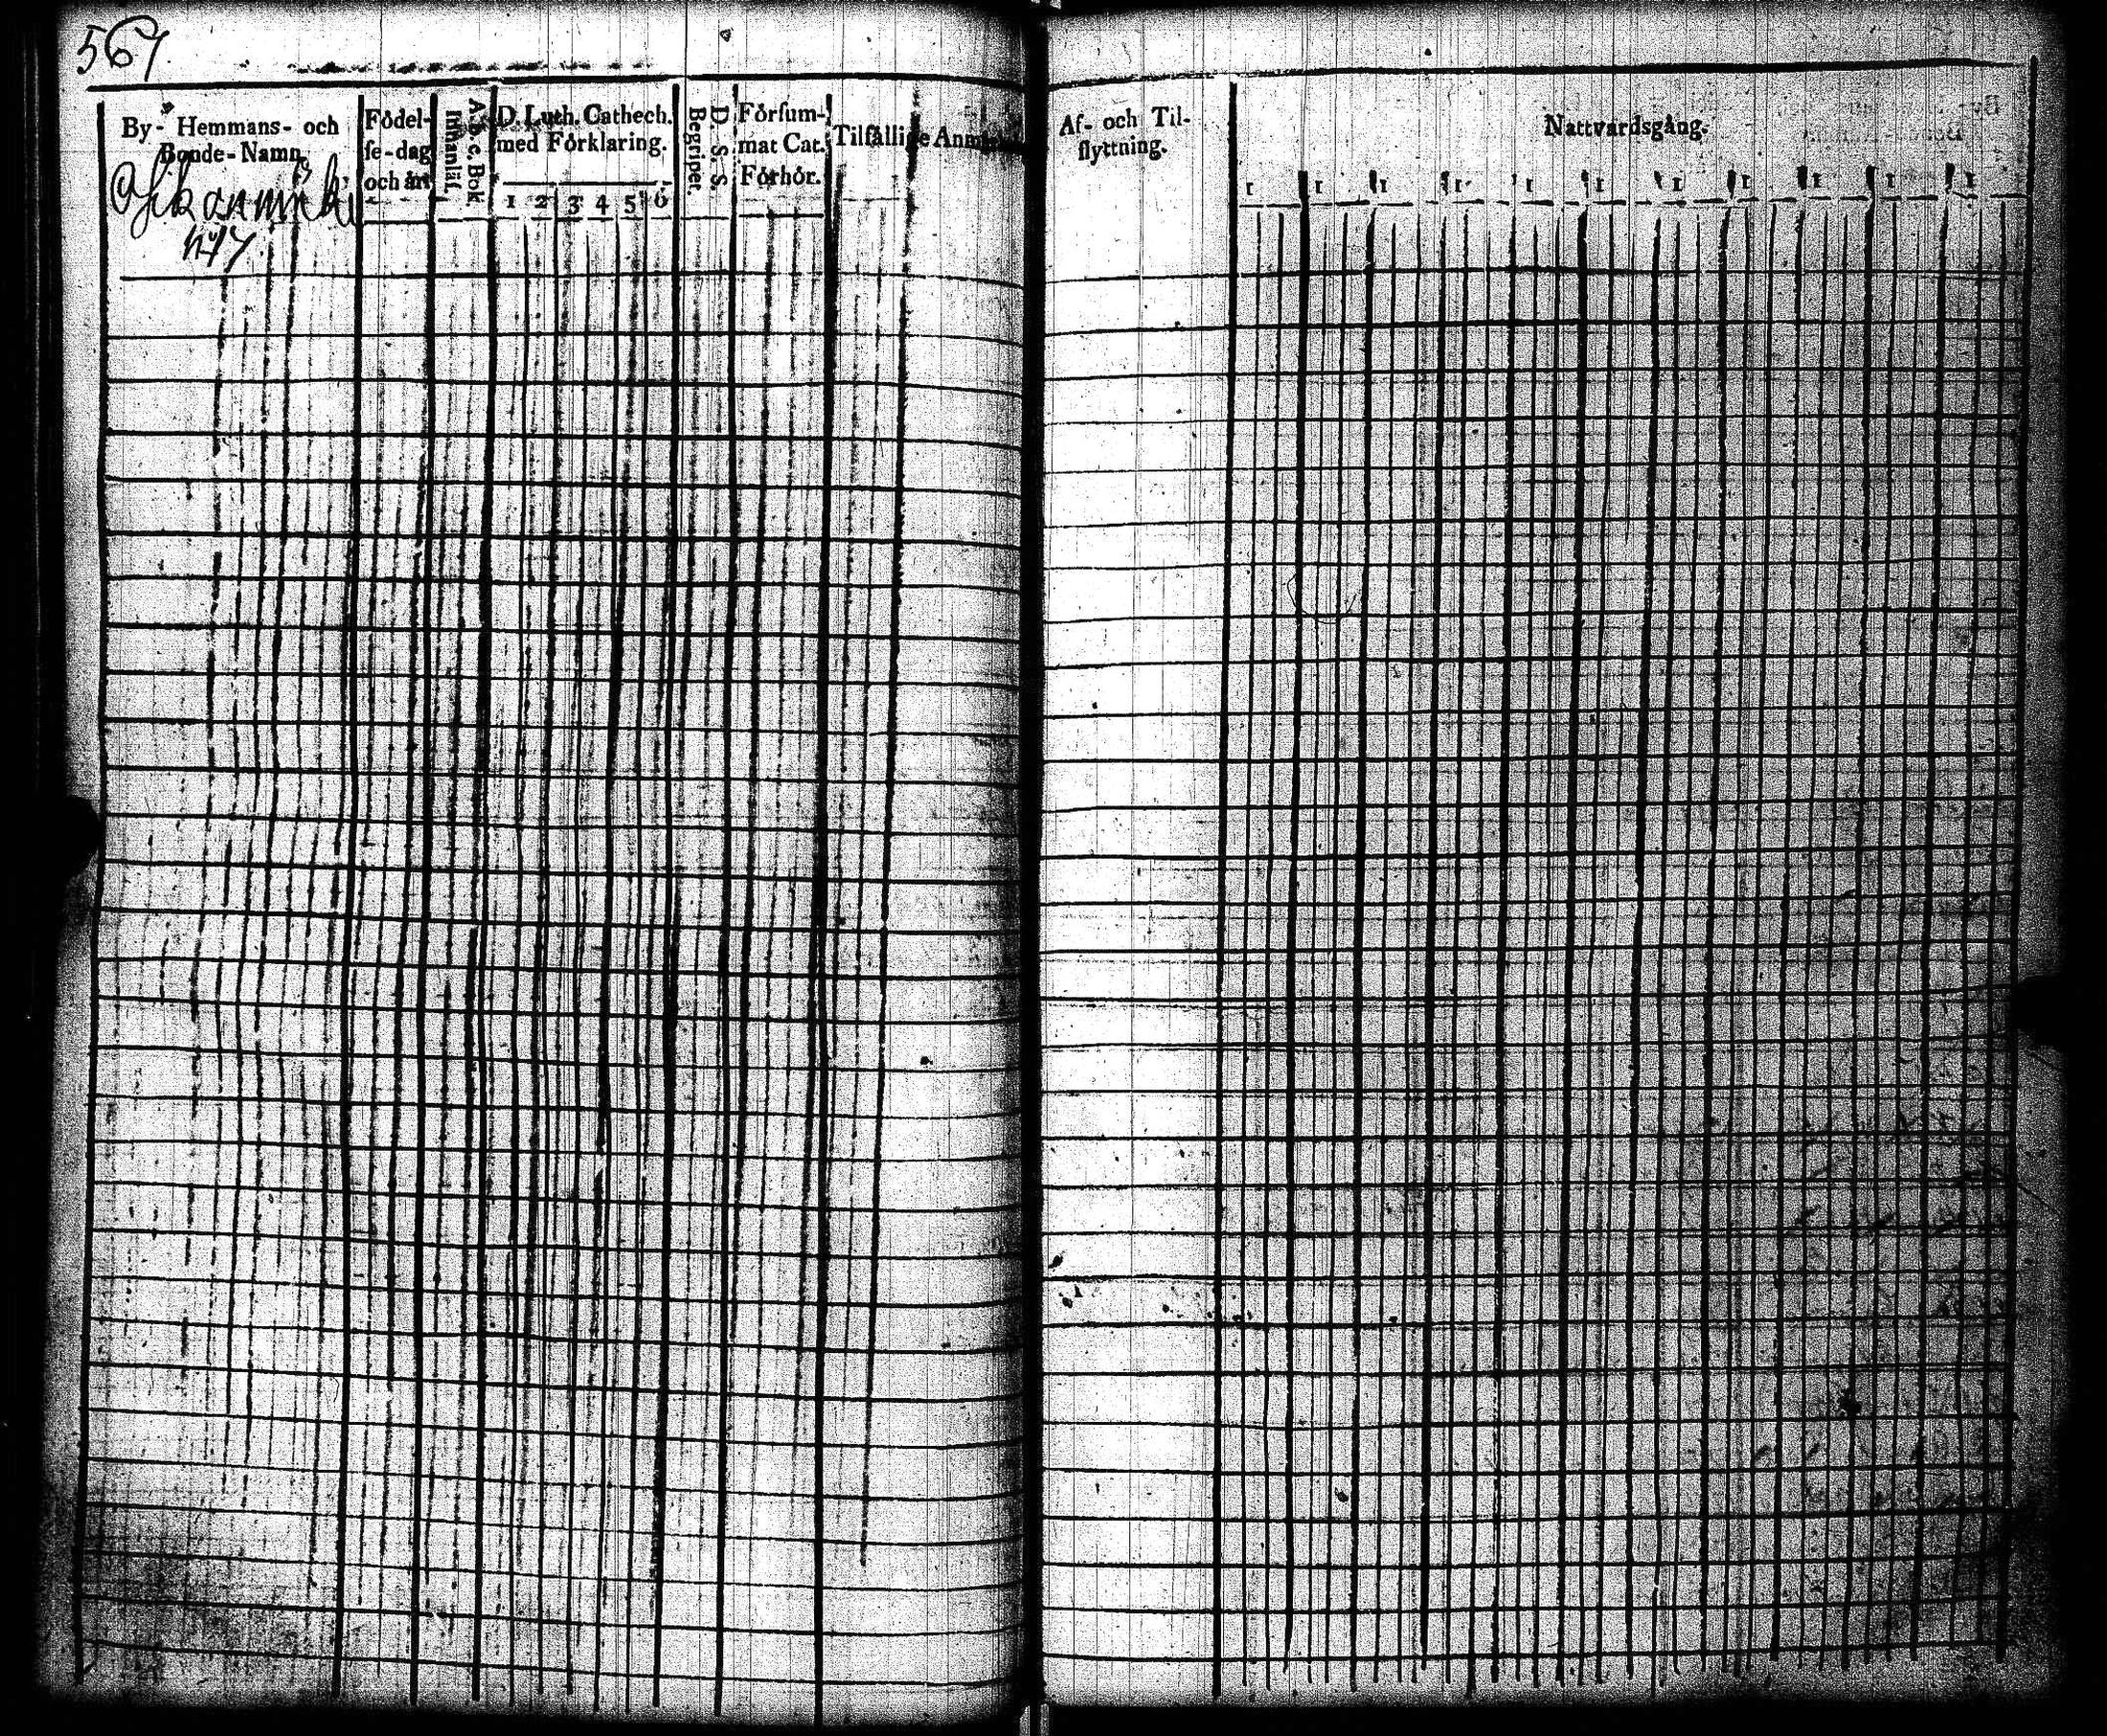 567.
By- Hemmans- och
Bonde-Namn.
Födel-
se-dag
och år
A. b. c. Bok
Innanläs.
D. Luth. Cathech.
med Förklaring.
1 2 3 4 5 6
D. S. S.
Begriper.
Försum-
mat Cat.
Förhör.
Tilfällige Anm
Af- och Til-
flyttning.
Nattvardsgång.
1 1 1 1 1 1 1 1 1 1 1